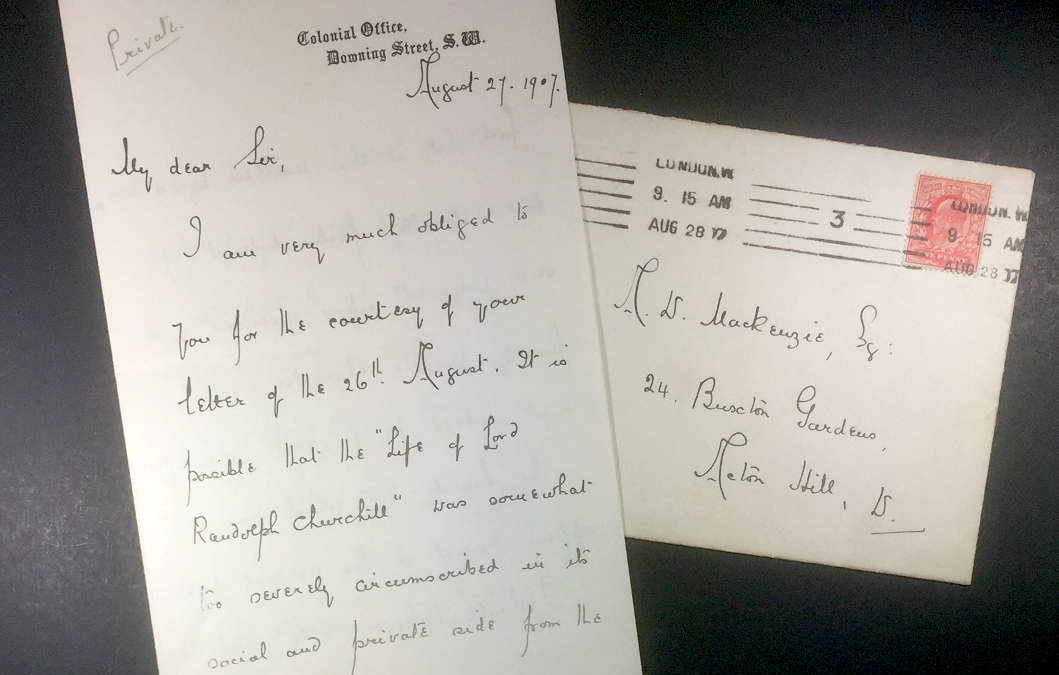 Private.
Colonial Office,
Downing Street, S.W.
August 27. 1907.
My dear Sir,
I am very much obliged to
you for the courtesy of your
letter of the 26th August. It is
possible that the "Life of Lord
Randolph Churchill" was somewhat
too severely circumscribed in its
social and private side from the
LONDON.W
9. 15 AM
AUG 28 07
3
LONDON. W
9. 15 AM
AUG 28 07
A. W. Mackenzie, Esq:
24. Buxton Gardens,
Acton Hill, W.